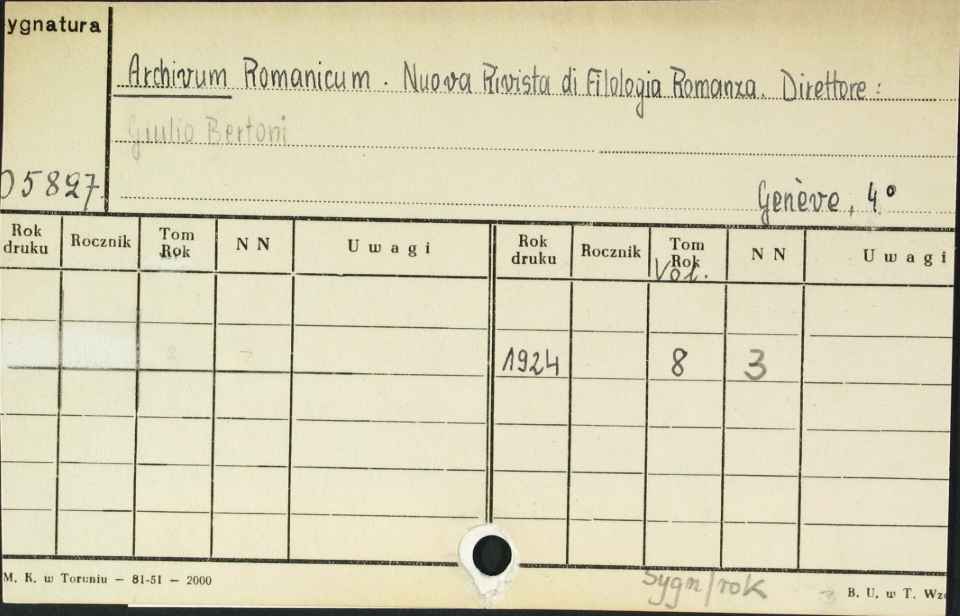 ygnatura
Archivum Romanicum. Nuova Rivista di Filologia Romanza. Direttore:
Giulio Bertoni
05827
Genève, 4º
Rok druku Rocznik Tom Rok N N Uwagi Rok druku Rocznik Tom Rok N N Uwagi
Vol.
1924 8 3
M. K. w Toruniu — 81-51 — 2000
Sygn/rok
3 B. U. w T. Wzó